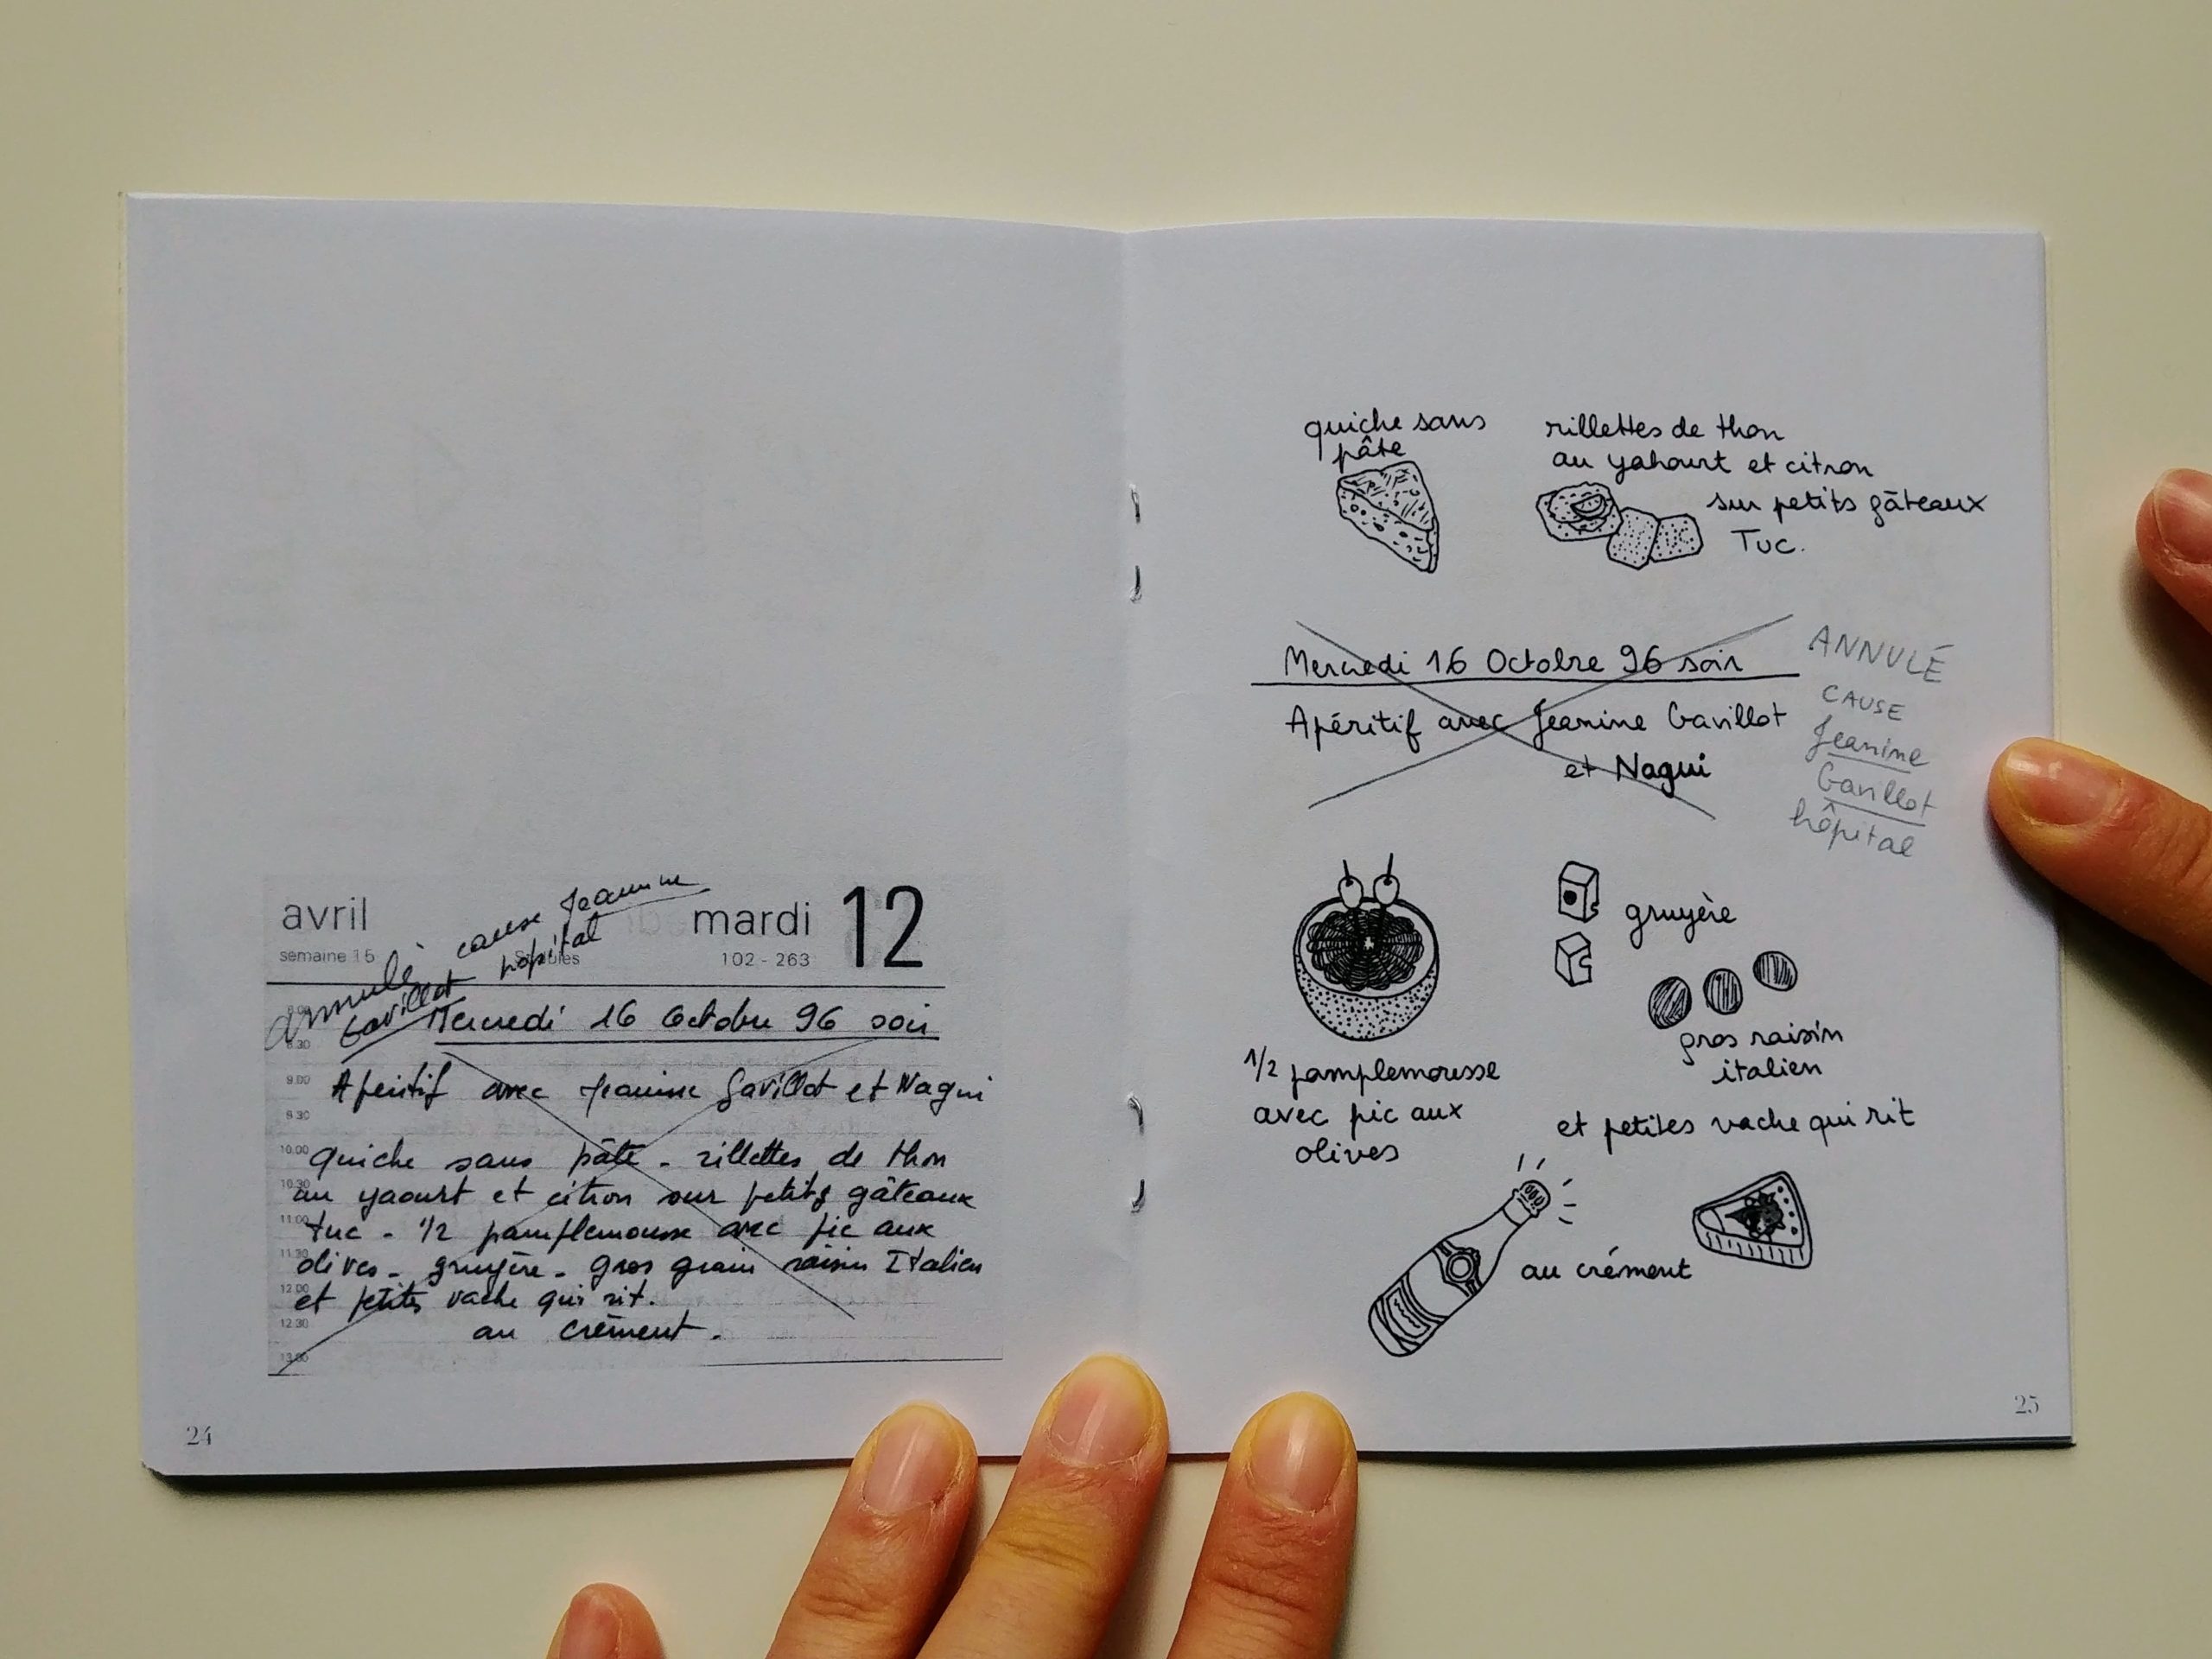 avril
mardi 12
semaine 15
102 - 263
annulé cause Jeannine
Gavillot hôpital
Mercredi 16 Octobre 96 soir
Apéritif avec Jeannine Gavillot et Nagui
quiche sans pâte - rillettes de thon
au yaourt et citron sur petits gâteaux
tuc - 1/2 pamplemousse avec pic aux
olives - gruyère - gros grain raisin Italien
et petites vache qui rit.
au crément.
8.30
9.00
9.30
10.00
10.30
11.00
11.30
12.00
12.30
13.00
24
quiche sans
pâte
rillettes de thon
au yahourt et citron
sur petits gâteaux
Tuc.
Mercredi 16 Octobre 96 soir
Apéritif avec Jeanine Gavillot
et Nagui
ANNULÉ
CAUSE
Jeanine
Gavillot
hôpital
gruyère
gros raisin
italien
1/2 pamplemousse
avec pic aux
olives
et petites vache qui rit
au crément
25